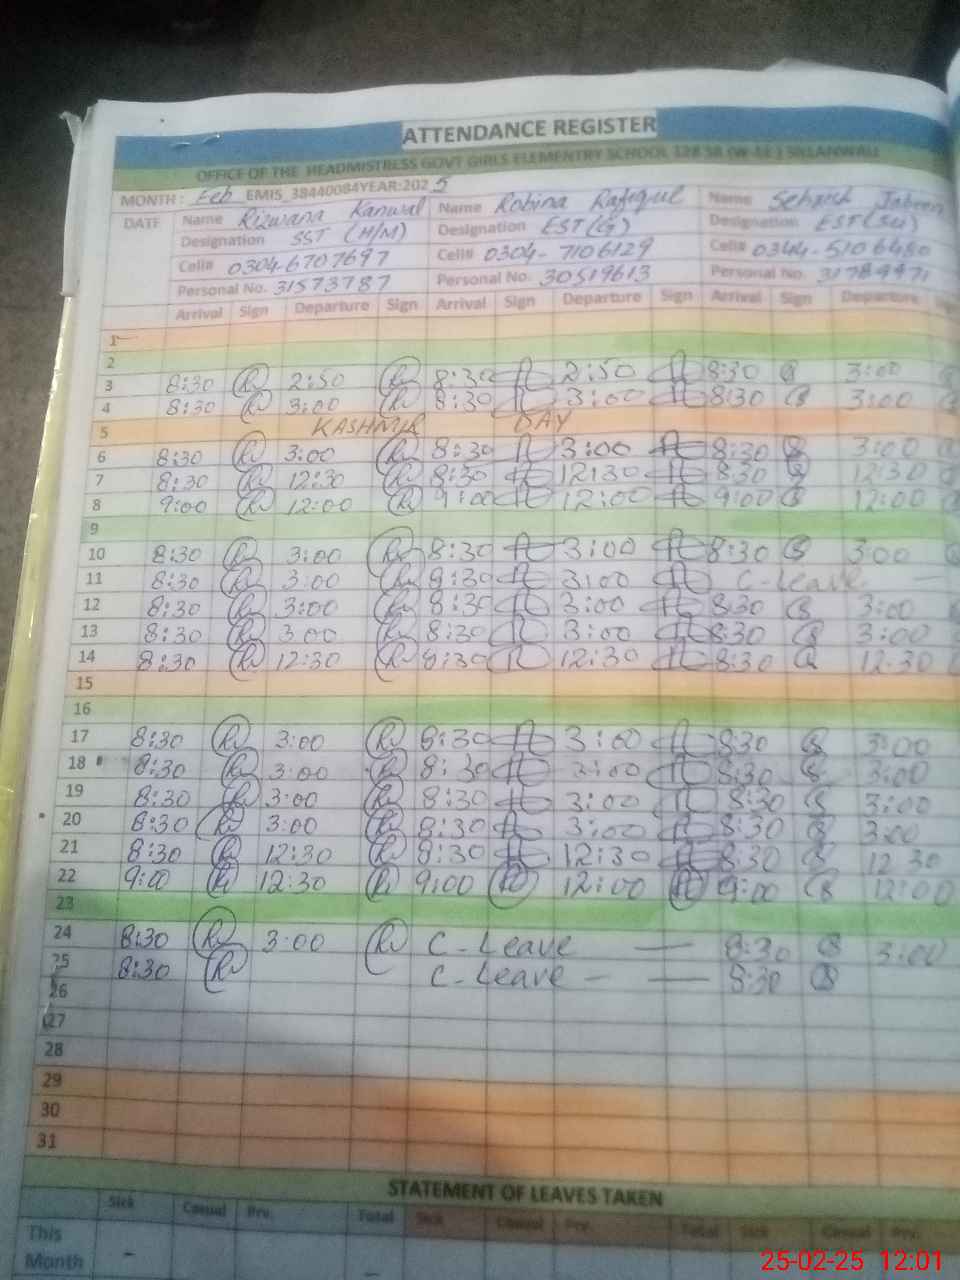 ATTENDANCE REGISTER
OFFICE OF THE HEADMISTRESS GOVT GIRLS ELEMENTRY SCHOOL 128 SB (W-SE) SILLANWALI
MONTH: Feb EMIS_38440084YEAR:2025
DATE Name Rizwana Kanwal Name Robina Rafique Name Sehrish Jabeen
Designation SST (H/M) Designation EST(G) Designation
Cell# 0304-6707697 Cell# 0304-7106129 Cell# 0344-5106480
Personal No. 31573787 Personal No. 30519613 Personal No. 31789971
Arrival Sign Departure Sign Arrival Sign Departure Sign Arrival Sign Departure
1
2
3 8:30 2:50 8:30 2:50 8:30 3:00
4 8:30 3:00 8:30 3:00 8:30 3:00
5 KASHMIR DAY
6 8:30 3:00 8:30 3:00 8:30 3:00
7 8:30 12:30 8:30 12:30 8:30 12:30
8 9:00 12:00 9:00 12:00 9:00 12:00
9
10 8:30 3:00 8:30 3:00 8:30 3:00
11 8:30 3:00 8:30 3:00 C-Leave —
12 8:30 3:00 8:30 3:00 8:30 3:00
13 8:30 3:00 8:30 3:00 8:30 3:00
14 8:30 12:30 8:30 12:30 8:30 12.30
15
16
17 8:30 3:00 8:30 3:00 8:30 3:00
18 8:30 3:00 8:30 3:00 8:30 3:00
19 8:30 3:00 8:30 3:00 8:30 3:00
20 8:30 3:00 8:30 3:00 8:30 3:00
21 8:30 12:30 8:30 12:30 8:30 12 30
22 9:00 12:30 9:00 12:00 9:00 12:00
23
24 8:30 3:00 C-Leave — 8:30 3:00
25 8:30 C-Leave — — 8:30
26
27
28
29
30
31
STATEMENT OF LEAVES TAKEN
Sick Casual Prv. Total Sick Casual Prv. Total Sick Casual Prv.
This
Month -
25-02-25 12:01